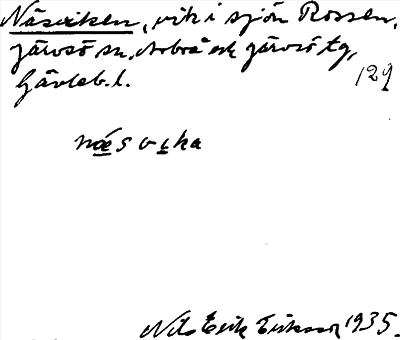 Näsviken, vik i sjön Rossen,
Järvsö sn, Arbrå och Järvsö tg,
Gävleb. l. 129
næs vika
Nils Erik Eriksson 1935.